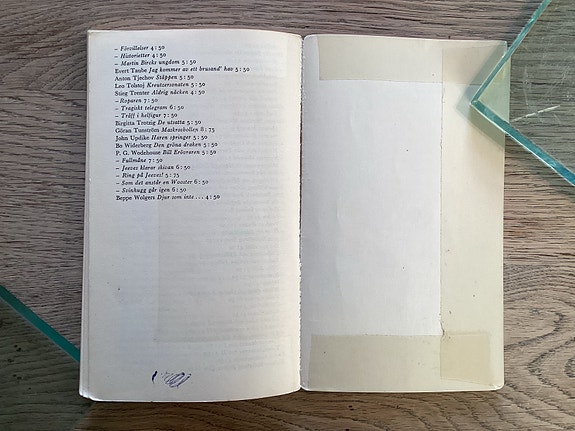 – Förvillelser 4:50
– Historietter 4:50
– Martin Bircks ungdom 5:50
Evert Taube Jag kommer av ett brusand' hav 5:50
Anton Tjechov Stäppen 5:50
Leo Tolstoj Kreutzersonaten 5:50
Stieg Trenter Aldrig näcken 4:50
– Roparen 7:50
– Tragiskt telegram 6:50
– Träff i helfigur 7:50
Birgitta Trotzig De utsatta 5:50
Göran Tunström Maskrosbollen 8:75
John Updike Haren springer 5:50
Bo Widerberg Den gröna draken 5:50
P. G. Wodehouse Bill Erövraren 5:50
– Fullmåne 7:50
– Jeeves klarar skivan 6:50
– Ring på Jeeves! 5:75
– Som det anstår en Wooster 6:50
– Svinhugg går igen 6:50
Beppe Wolgers Djur som inte . . . 4:50